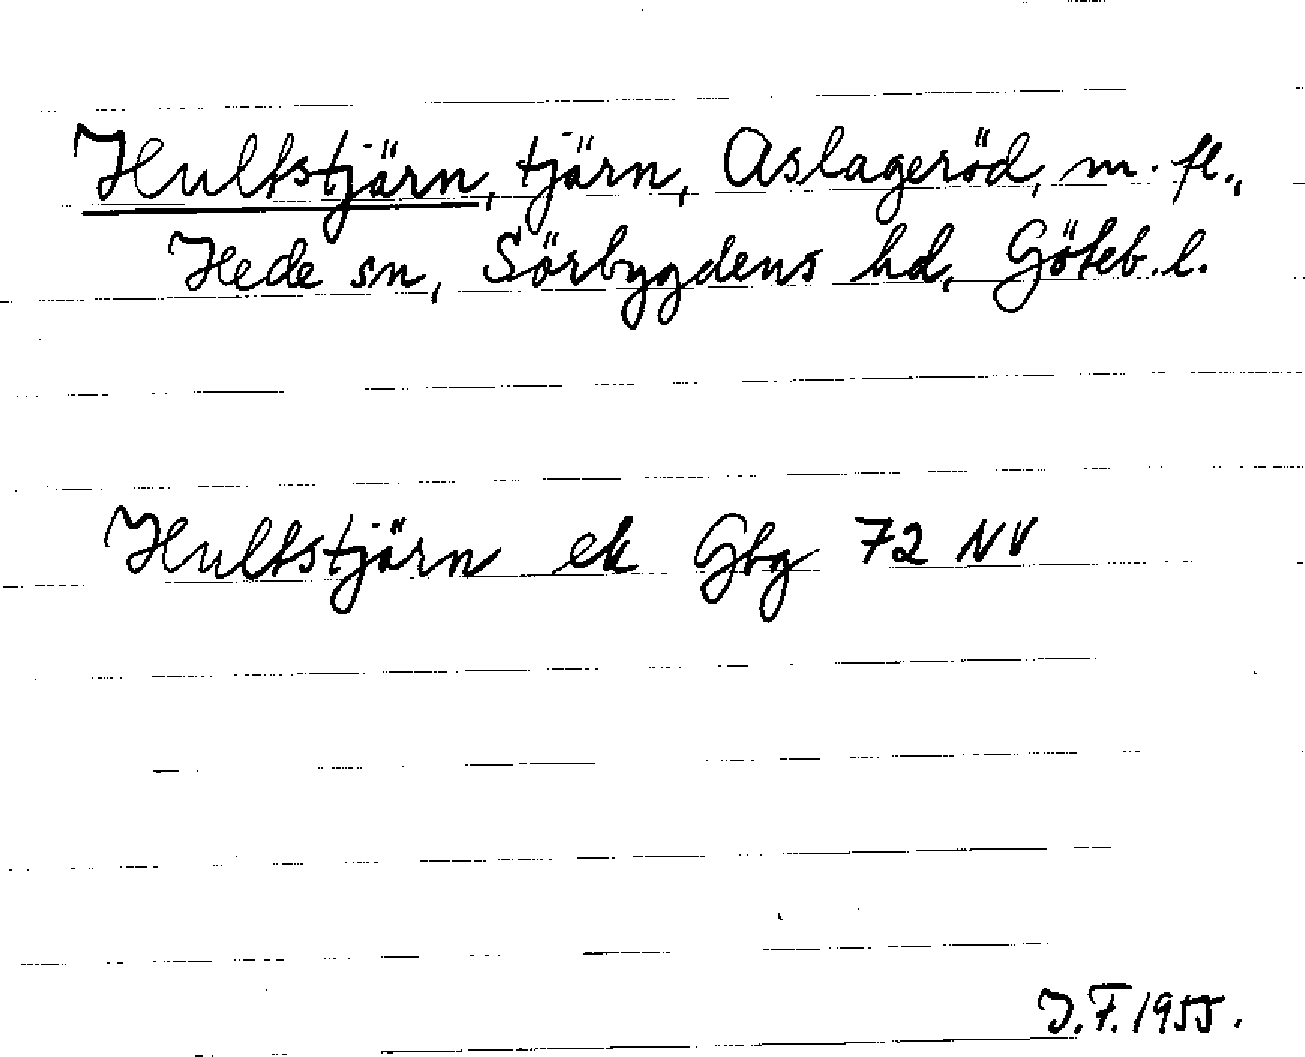 Hultstjärn, tjärn, Aslageröd, m. fl.,
Hede sn, Sörbygdens hd, Göteb. l.
Hultstjärn ek Gbg 72 NV
J.F. 1955.